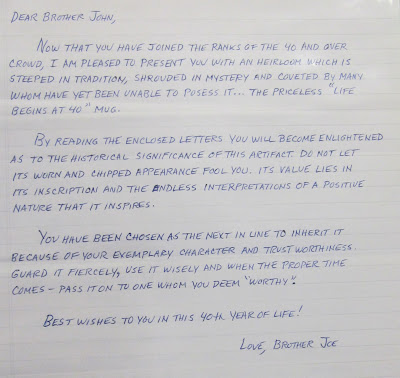 DEAR BROTHER JOHN,
NOW THAT YOU HAVE JOINED THE RANKS OF THE 40 AND OVER
CROWD, I AM PLEASED TO PRESENT YOU WITH AN HEIRLOOM WHICH IS
STEEPED IN TRADITION, SHROUDED IN MYSTERY AND COVETED BY MANY
WHOM HAVE YET BEEN UNABLE TO POSESS IT... THE PRICELESS "LIFE
BEGINS AT 40" MUG.
BY READING THE ENCLOSED LETTERS YOU WILL BECOME ENLIGHTENED
AS TO THE HISTORICAL SIGNIFICANCE OF THIS ARTIFACT. DO NOT LET
ITS WORN AND CHIPPED APPEARANCE FOOL YOU. ITS VALUE LIES IN
ITS INSCRIPTION AND THE ENDLESS INTERPRETATIONS OF A POSITIVE
NATURE THAT IT INSPIRES.
YOU HAVE BEEN CHOSEN AS THE NEXT IN LINE TO INHERIT IT
BECAUSE OF YOUR EXEMPLARY CHARACTER AND TRUST WORTHINESS.
GUARD IT FIERCELY, USE IT WISELY AND WHEN THE PROPER TIME
COMES - PASS IT ON TO ONE WHOM YOU DEEM "WORTHY".
BEST WISHES TO YOU IN THIS 40th YEAR OF LIFE!
LOVE, BROTHER JOE